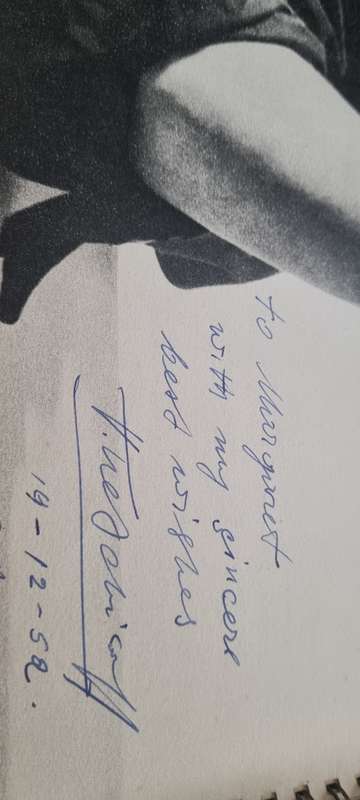 to Margaret
with my sincere
best wishes
19-12-52.